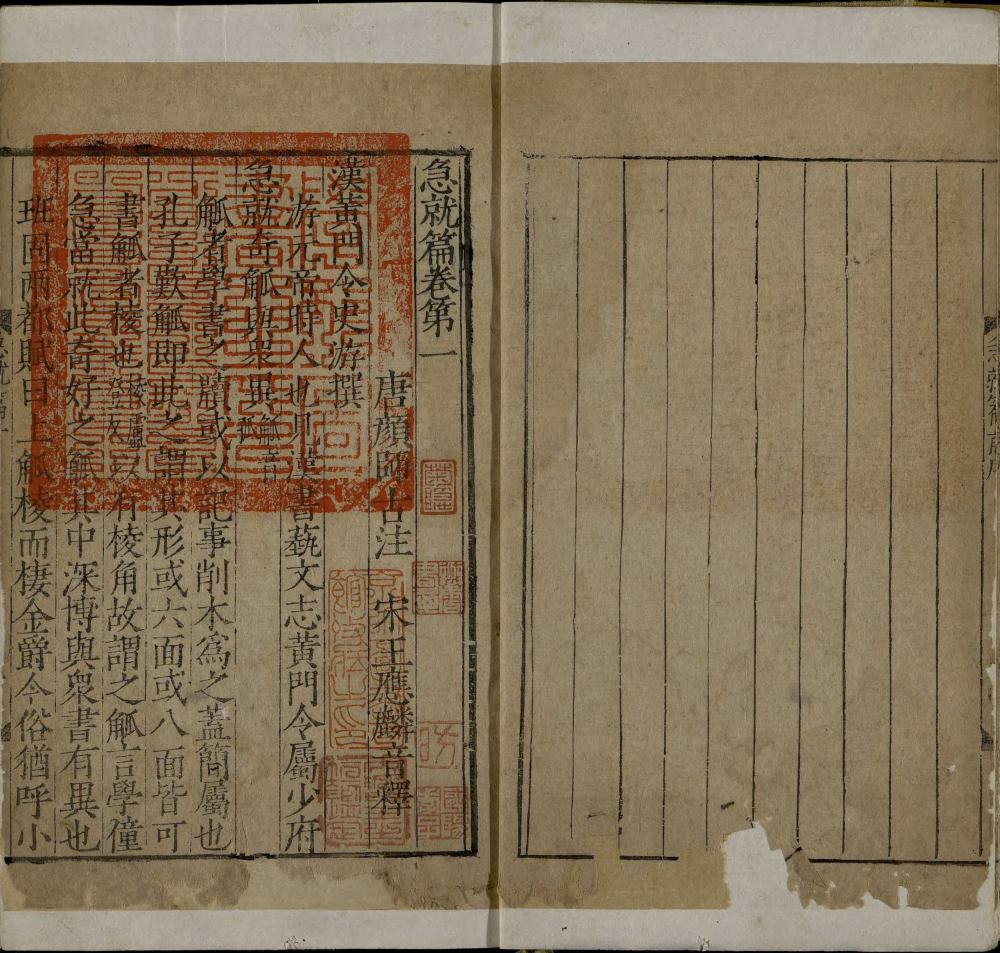 急就篇卷第一
唐顔師古注　宋王應麟音釋
漢黃門令史游撰
游元帝時人也見漢書藝文志黃門令屬少府
急就奇觚與衆異觚音孤
觚者學書之牘或以記事削木為之蓋簡屬也
孔子歎觚即此之謂其形或六面或八面皆可
書觚者棱也以有棱角故謂之觚言學僮
急當就此奇好之觚其中深博與衆書有異也
班固兩都賦曰上觚棱而棲金爵今俗猶呼小